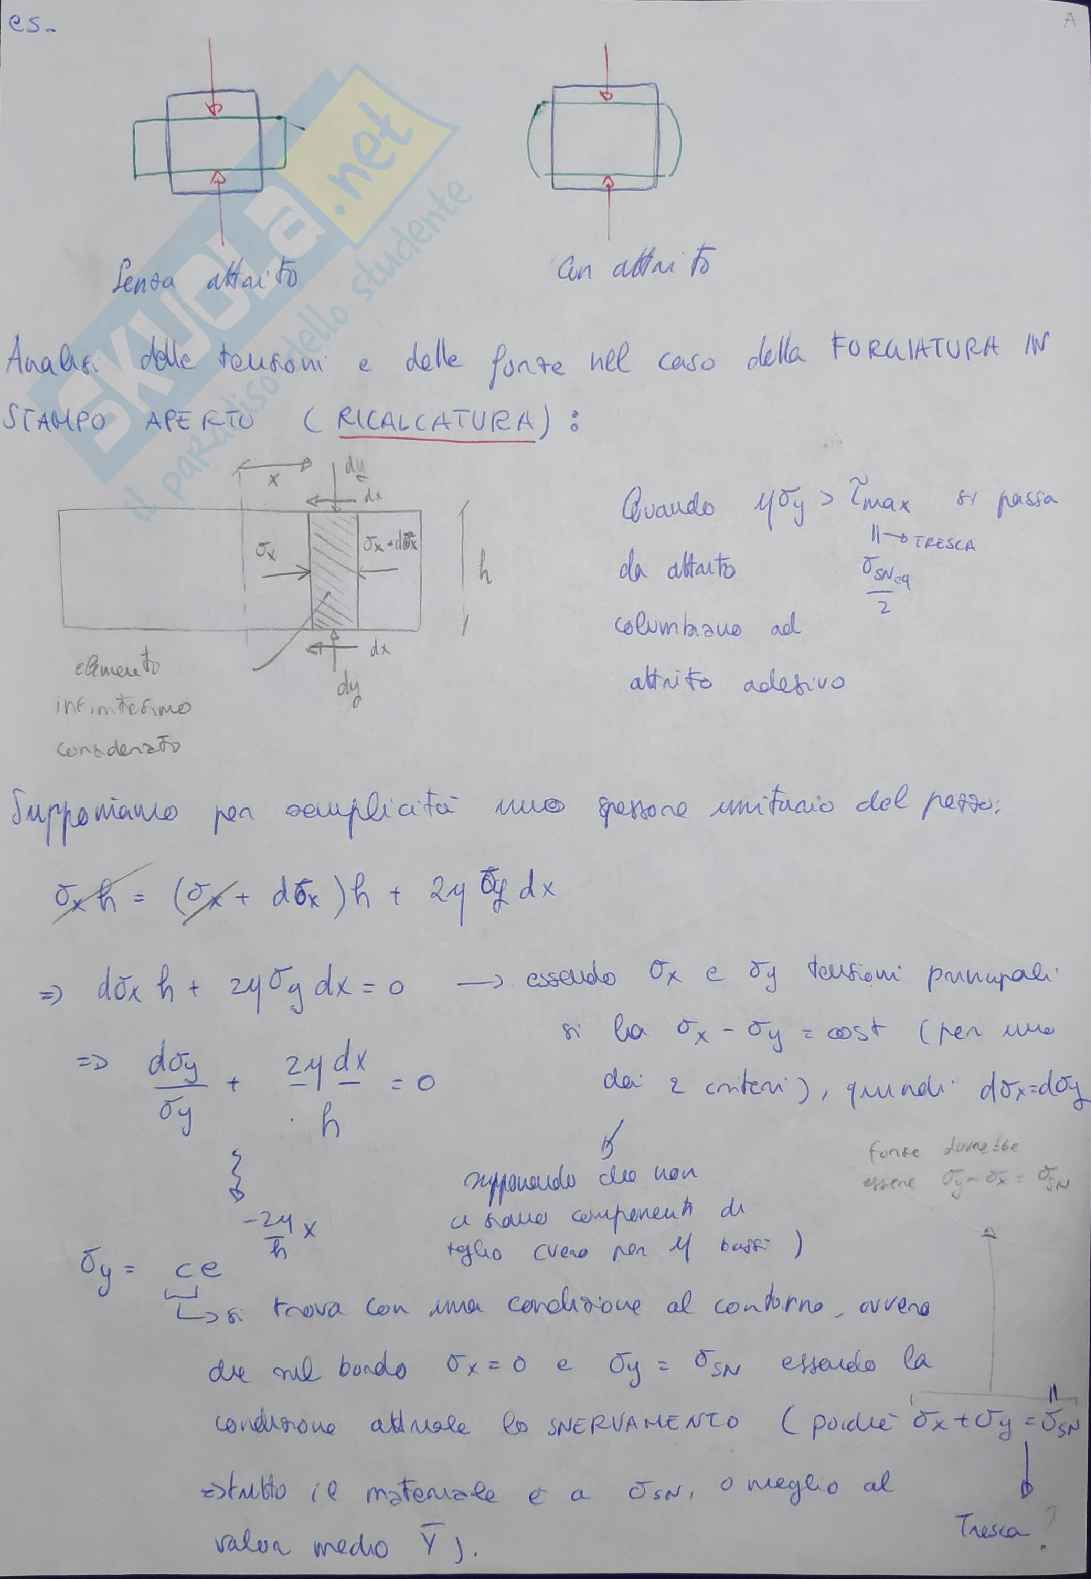 es.
A
SKUOLa.net
il paradiso dello studente
Senza attrito
Con attrito
Analisi delle tensioni e delle forze nel caso della FORGIATURA IN
STAMPO APERTO (RICALCATURA):
x
dy
dx
σx
σx+dσx
h
dx
dy
elemento
infinitesimo
considerato
Quando μσy > τmax si passa
TRESCA
da attrito
σSN,eq
2
columbiano ad
attrito adesivo
Supponiamo per semplicità uno spessore unitario del pezzo:
σx h = (σx + dσx)h + 2μ σy dx
=> dσx h + 2μσy dx = 0 → essendo σx e σy tensioni principali
si ha σx - σy = cost (per uno
=> dσy/σy + 2μdx/h = 0
dei 2 criteri), quindi dσx=dσy
supponendo che non
ci siano componenti di
taglio (vero per μ bassi)
forse dovrebbe
essere σy - σx = σSN
σy = ce^(-2μ/h x)
→ si trova con una condizione al contorno, ovvero
che nel bordo σx = 0 e σy = σSN essendo la
condizione attuale lo SNERVAMENTO (poiché σx+σy = σSN
=> tutto il materiale è a σSN, o meglio al
valor medio Y̅).
Tresca?